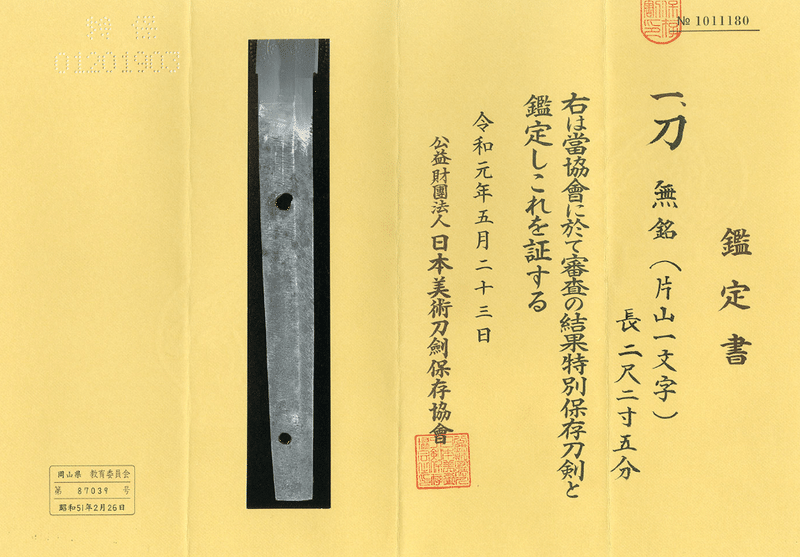 № 1011180
鑑定書
一、刀 無銘(片山一文字)
長二尺二寸五分
右は當協會に於て審査の結果特別保存刀剣と
鑑定しこれを証する
令和元年五月二十三日
公益財團法人 日本美術刀劍保存協會
特保
01201903
岡山県 教育委員会
第 87039 号
昭和51年2月26日